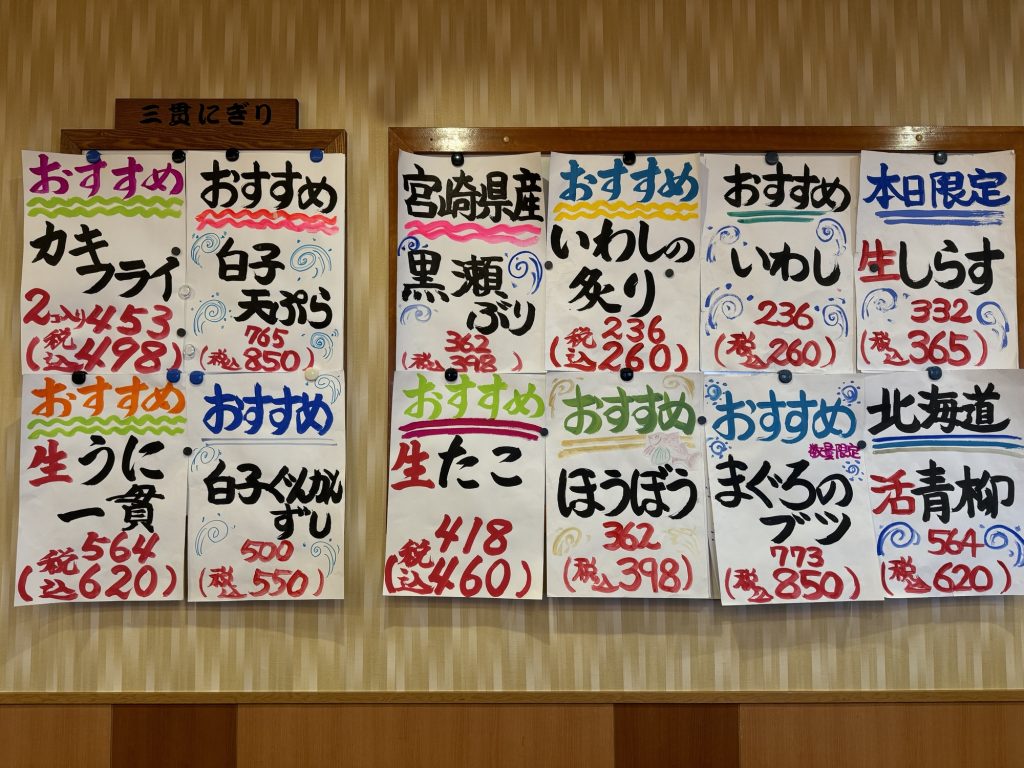 三貫にぎり
おすすめ
カキ
フライ
2コ入り453
(税込498)
おすすめ
白子
天ぷら
765
(税込850)
おすすめ
生うに
一貫
564
(税込620)
おすすめ
白子ぐんかん
ずし
500
(税込550)
宮崎県産
黒瀬
ぶり
362
(税込398)
おすすめ
いわしの
炙り
236
(税込260)
おすすめ
いわし
236
(税込260)
本日限定
生しらす
332
(税込365)
おすすめ
生たこ
418
(税込460)
おすすめ
ほうぼう
362
(税込398)
おすすめ
数量限定
まぐろの
ブツ
773
(税込850)
北海道
活青柳
564
(税込620)